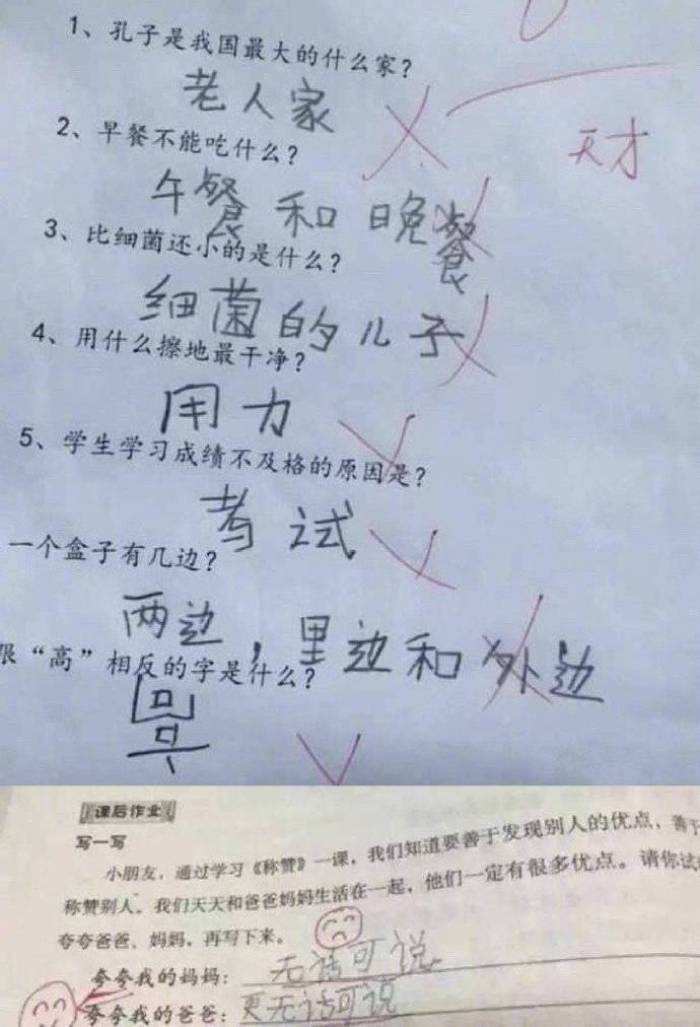 1、孔子是我国最大的什么家？
老人家
天才
2、早餐不能吃什么？
午餐和晚餐
3、比细菌还小的是什么？
细菌的儿子
4、用什么擦地最干净？
用力
5、学生学习成绩不及格的原因是？
考试
一个盒子有几边？
两边，里边和外边
跟“高”相反的字是什么？
课后作业
写一写
小朋友，通过学习《称赞》一课，我们知道要善于发现别人的优点，善于
称赞别人。我们天天和爸爸妈妈生活在一起，他们一定有很多优点。请你试
夸夸爸爸、妈妈，再写下来。
夸夸我的妈妈：无话可说
夸夸我的爸爸：更无话可说